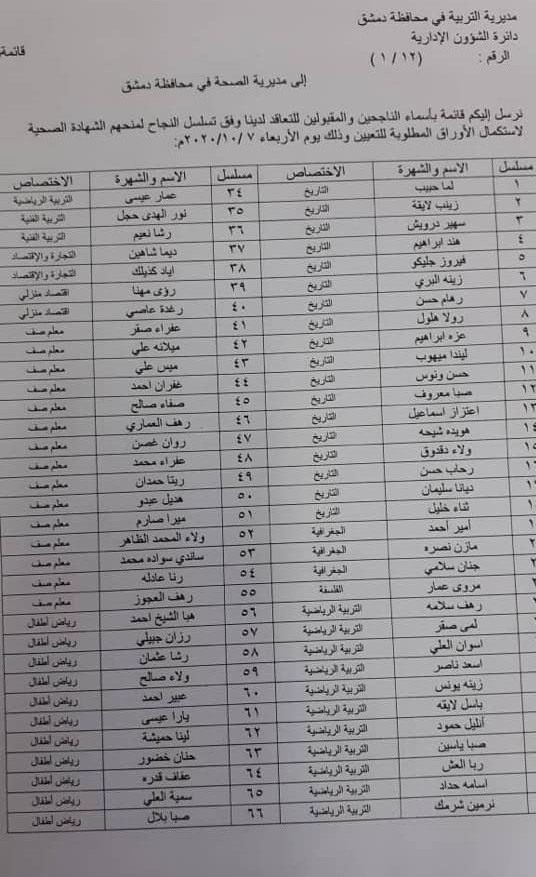 مديرية التربية في محافظة دمشق
دائرة الشؤون الإدارية
الرقم : (١/١٢)
قائمة
إلى مديرية الصحة في محافظة دمشق
نرسل إليكم قائمة بأسماء الناجحين والمقبولين للتعاقد لدينا وفق تسلسل النجاح لمنحهم الشهادة الصحية
لاستكمال الأوراق المطلوبة للتعيين وذلك يوم الأربعاء ٢٠٢٠/١٠/٧م:
مسلسل الاسم والشهرة الاختصاص مسلسل الاسم والشهرة الاختصاص
١ لما حبيب التاريخ ٣٤ عمار عيسى التربية الرياضية
٢ زينب لايقة التاريخ ٣٥ نور الهدى حجل التربية الفنية
٣ سهير درويش التاريخ ٣٦ رشا نعيم التربية الفنية
٤ هند ابراهيم التاريخ ٣٧ ديما شاهين التجارة والإقتصاد
٥ فيروز جليكو التاريخ ٣٨ اياد كذيلك التجارة والإقتصاد
٦ زينه البري التاريخ ٣٩ رؤى مهنا اقتصاد منزلي
٧ رهام حسن التاريخ ٤٠ رغدة عاصي اقتصاد منزلي
٨ رولا هلول التاريخ ٤١ عفراء صقر معلم صف
٩ عزه ابراهيم التاريخ ٤٢ ميلانه علي معلم صف
١٠ ليندا ميهوب التاريخ ٤٣ ميس علي معلم صف
١١ حسن ونوس التاريخ ٤٤ غفران احمد معلم صف
١٢ صبا معروف التاريخ ٤٥ صفاء صالح معلم صف
١٣ اعتزاز اسماعيل التاريخ ٤٦ رهف العماري معلم صف
١٤ هويده شيحه التاريخ ٤٧ روان غصن معلم صف
١٥ ولاء دقدوق التاريخ ٤٨ عفراء محمد معلم صف
١٦ رحاب حسن التاريخ ٤٩ ريتا حمدان معلم صف
ديانا سليمان التاريخ ٥٠ هديل عبدو معلم صف
لثاء خليل التاريخ ٥١ ميرا صارم معلم صف
أمير أحمد الجغرافية ٥٢ ولاء المحمد الظاهر معلم صف
مازن نصره الجغرافية ٥٣ ساندي سواده محمد معلم صف
جنان سلامي الجغرافية ٥٤ رنا عادله معلم صف
مروى عمار الفلسفة ٥٥ رهف العجوز معلم صف
رهف سلامه التربية الرياضية ٥٦ هيا الشيخ احمد رياض أطفال
لمى صقر التربية الرياضية ٥٧ رزان جبيلي رياض أطفال
اسوان العلي التربية الرياضية ٥٨ رشا عثمان رياض أطفال
اسعد ناصر التربية الرياضية ٥٩ ولاء صالح رياض أطفال
زينه يونس التربية الرياضية ٦٠ عبير احمد رياض أطفال
باسل لايقه التربية الرياضية ٦١ يارا عيسى رياض أطفال
أنليل حمود التربية الرياضية ٦٢ لينا حميشة رياض أطفال
صبا ياسين التربية الرياضية ٦٣ حنان خضور رياض أطفال
ربا العش التربية الرياضية ٦٤ عفاف قدره رياض أطفال
اسامه حداد التربية الرياضية ٦٥ سمية العلي رياض أطفال
نرمين شرمك التربية الرياضية ٦٦ صبا بلال رياض أطفال